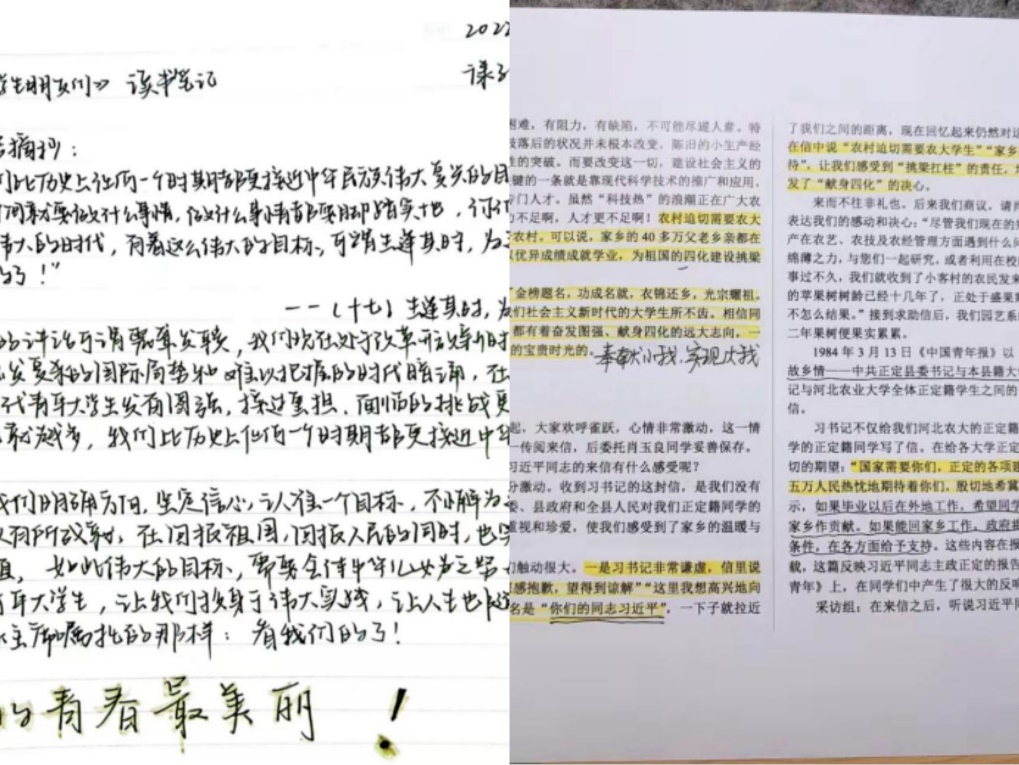 2022
学生朋友们》 读书笔记
摘抄：
们比历史上任何一个时期都更接近中华民族伟大复兴的目
伟大的时代，有着这么伟大的目标，可谓生逢其时，为
的了！”
——（十七）生逢其时，为
代青年大学生发奋图强，接过重担，面临的挑战更
就越多，我们比历史上任何一个时期都更接近中华
我们明确方向，坚定信心，认准一个目标，不懈为
有所成就，在回报祖国，回报人民的同时，也实
值，如此伟大的目标，需要全体中华儿女为之努
青年大学生，让我们投身于伟大实践，让人生
主席嘱托的那样：看我们的了！
的青春最美丽！
困难，有阻力，有缺陷，不可能尽遂人意。特
落后的状况并未根本改变，陈旧的小生产经
性的突破。而要改变这一切，建设社会主义的
键的一条就是靠现代科学技术的推广和应用，
专门人才。虽然“科技热”的浪潮正在广大农
力不足啊，人才更不足啊！农村迫切需要农大
农村。可以说，家乡的 40 多万父老乡亲都在
以优异成绩成就学业，为祖国的四化建设挑梁
了金榜题名，功成名就，衣锦还乡，光宗耀祖。
们社会主义新时代的大学生所不齿。相信同
都有着奋发图强、献身四化的远大志向。一
的宝贵时光的。
奉献小我，实现大我
起，大家欢呼雀跃，心情非常激动，这一情
一传阅来信，后委托肖玉良同学妥善保存。
习近平同志的来信有什么感受呢？
分激动。收到习书记的这封信，是我们没有
委、县政府和全县人民对我们正定籍同学的
重视和珍爱，使我们感受到了家乡的温暖与
们触动很大。一是习书记非常谦虚，信里说
感抱歉，望得到谅解”“这里我想高兴地向
名是“你们的同志习近平”，一下子就拉近
了我们之间的距离，现在回忆起来仍然对这
在信中说“农村迫切需要农大学生”“家乡
待”，让我们感受到“挑梁扛柱”的责任，
发了“献身四化”的决心。
来而不往非礼也。后来我们商议，请肖
表达我们的感动和决心：“尽管我们现在的
产在农艺、农技及农经管理方面遇到什么问
绵薄之力，与您们一起研究，或者利用在校
事过不久，我们就收到了小客村的农民发来
的苹果树树龄已经十几年了，正处于盛果期
不怎么结果。”接到求助信后，我们园艺系
二年果树便果实累累。
1984 年 3 月 13 日《中国青年报》以
故乡情——中共正定县委书记与本县籍大
记与河北农业大学全体正定籍学生之间的
信。
习书记不仅给我们河北农大的正定籍
学的正定籍同学写了信。在给各大学正定
切的期望：“国家需要你们，正定的各项
五万人民热忱地期待着你们。殷切地希冀
示，如果毕业以后在外地工作，希望同学
家乡作贡献。如果能回家乡工作，政府提
条件，在各方面给予支持。这些内容在报
载，这篇反映习近平同志主政正定的报告
青年》上，在同学们中产生了很大的反响
采访组：在来信之后，听说习近平同